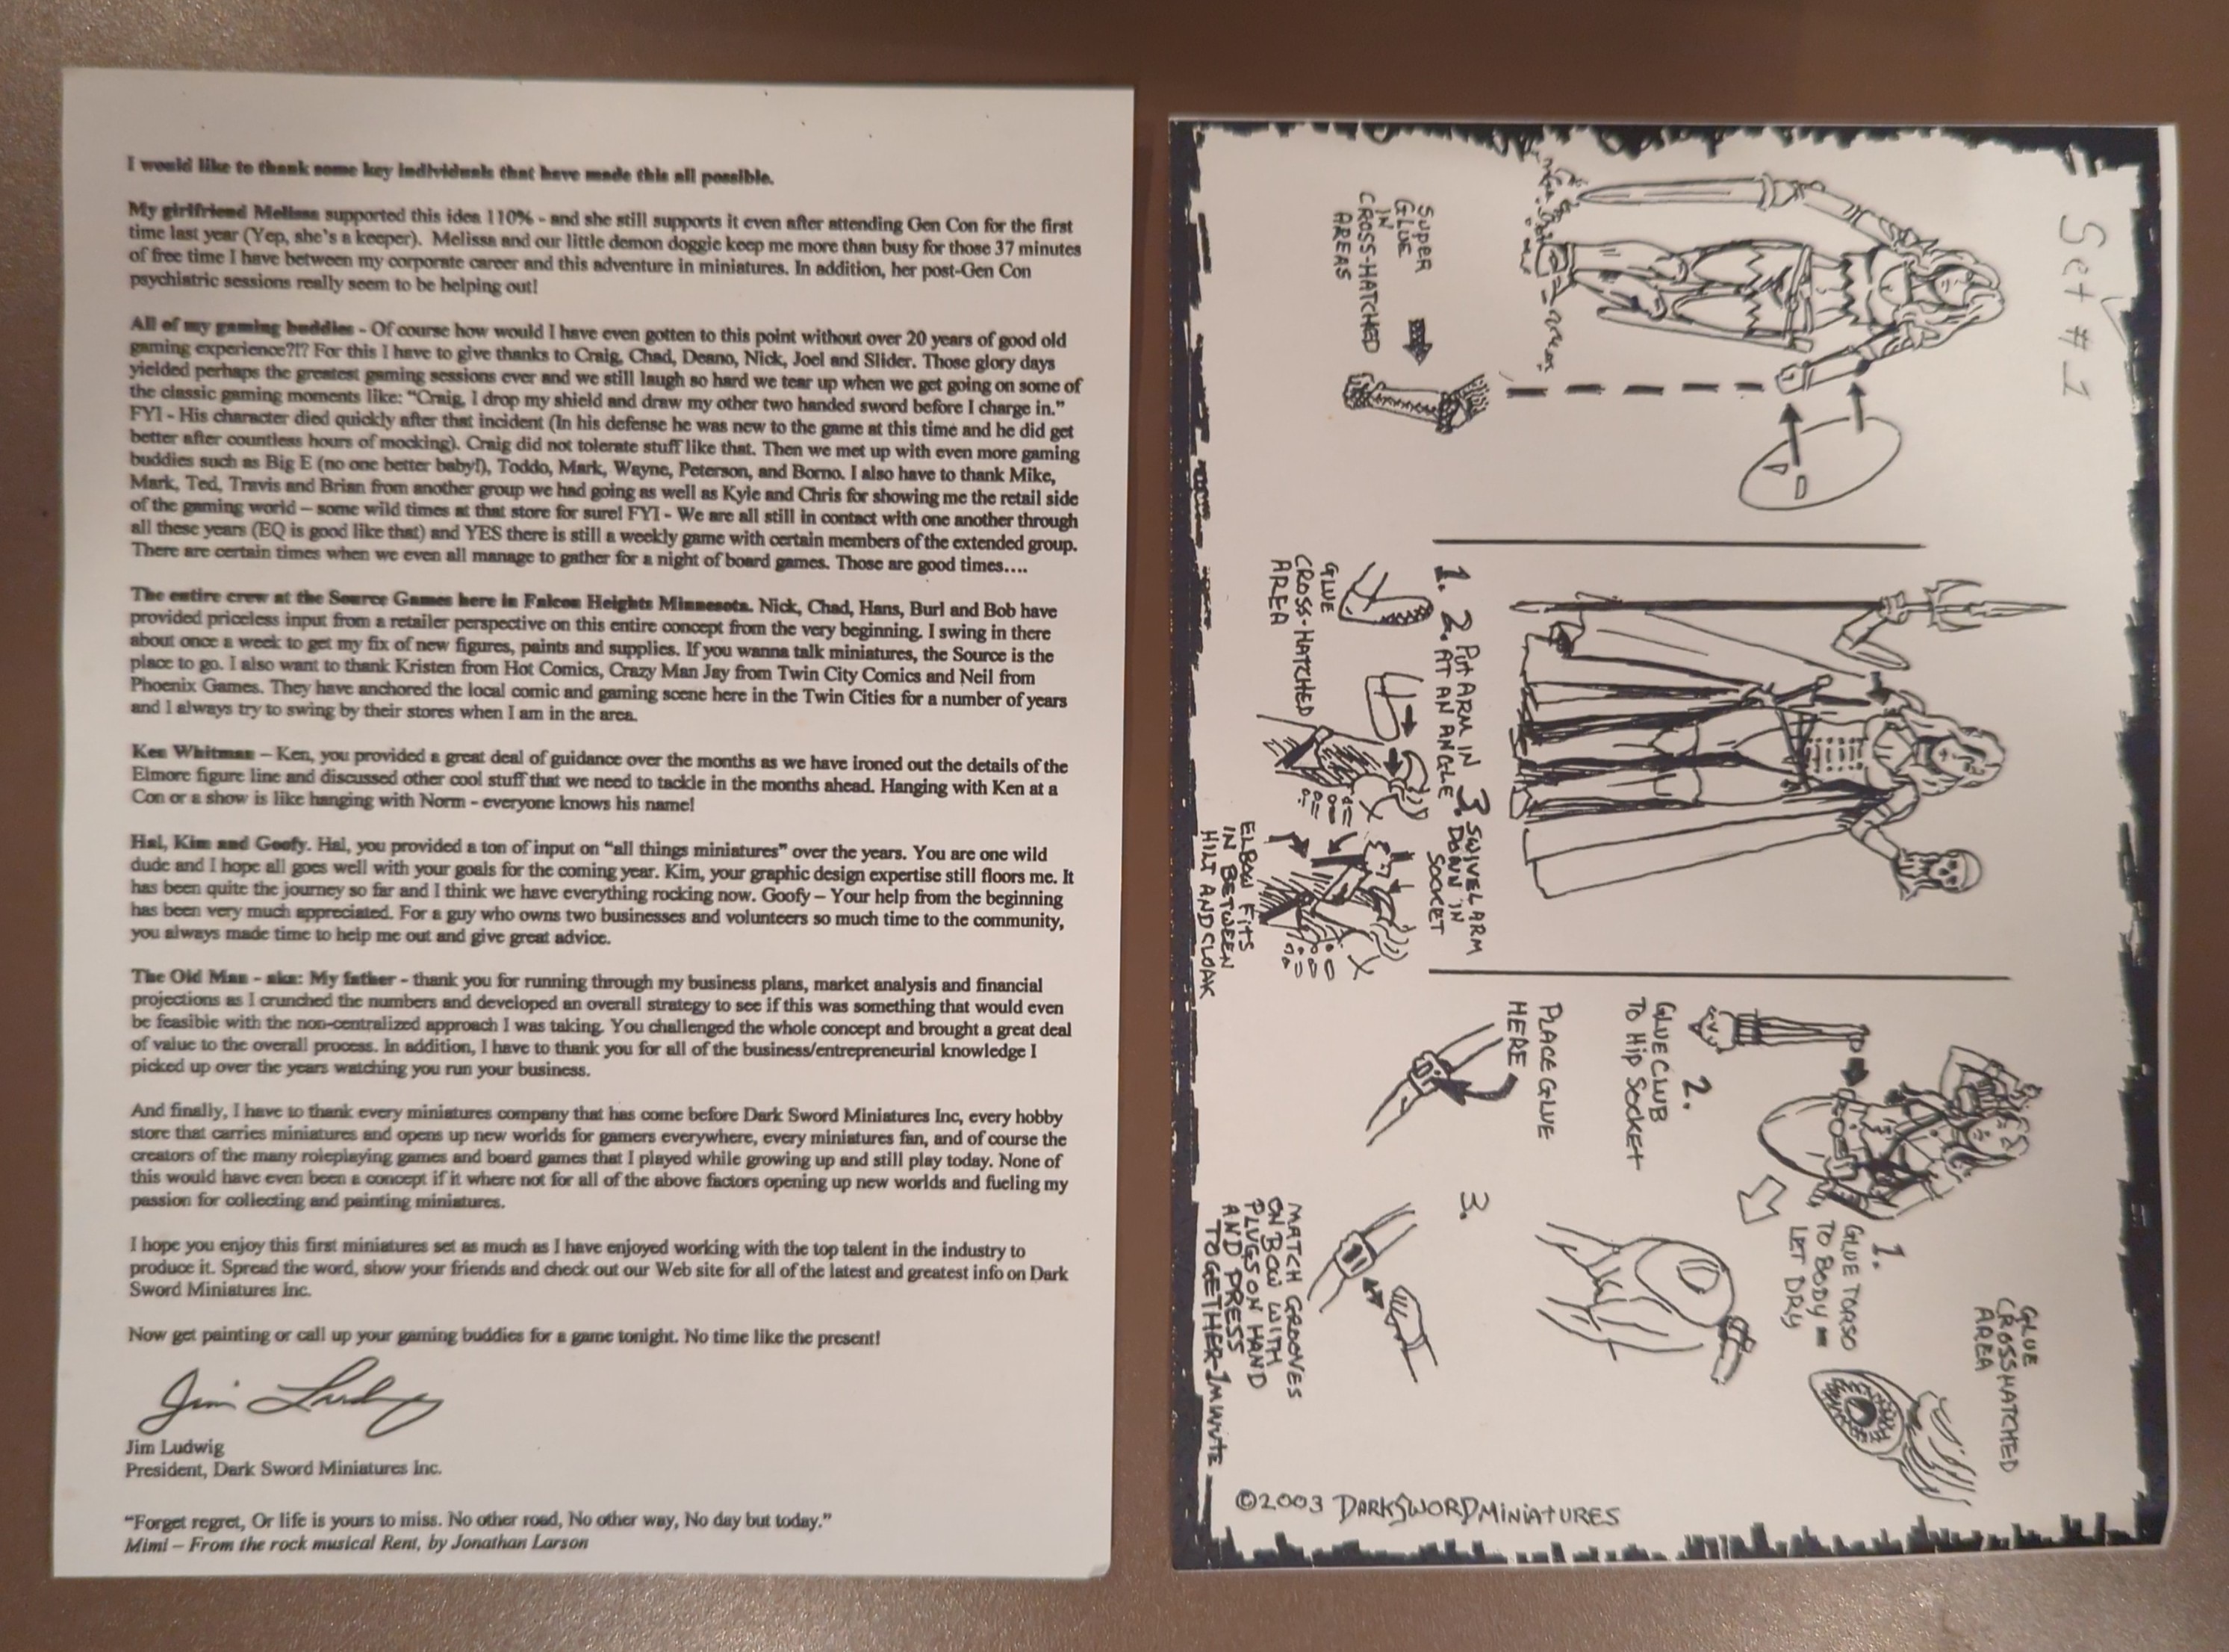 I would like to thank some key individuals that have made this all possible.
My girlfriend Melissa supported this idea 110% - and she still supports it even after attending Gen Con for the first
time last year (Yep, she's a keeper). Melissa and our little demon doggie keep me more than busy for those 37 minutes
of free time I have between my corporate career and this adventure in miniatures. In addition, her post-Gen Con
psychiatric sessions really seem to be helping out!
All of my gaming buddies - Of course how would I have even gotten to this point without over 20 years of good old
gaming experience?!? For this I have to give thanks to Craig, Chad, Deano, Nick, Joel and Slider. Those glory days
yielded perhaps the greatest gaming sessions ever and we still laugh so hard we tear up when we get going on some of
the classic gaming moments like: "Craig, I drop my shield and draw my other two handed sword before I charge in."
FYI - His character died quickly after that incident (In his defense he was new to the game at this time and he did get
better after countless hours of mocking). Craig did not tolerate stuff like that. Then we met up with even more gaming
buddies such as Big E (no one better baby!), Toddo, Mark, Wayne, Peterson, and Borno. I also have to thank Mike,
Mark, Ted, Travis and Brian from another group we had going as well as Kyle and Chris for showing me the retail side
of the gaming world – some wild times at that store for sure! FYI - We are all still in contact with one another through
all these years (EQ is good like that) and YES there is still a weekly game with certain members of the extended group.
There are certain times when we even all manage to gather for a night of board games. Those are good times....
The entire crew at the Source Games here in Falcon Heights Minnesota. Nick, Chad, Hans, Burl and Bob have
provided priceless input from a retailer perspective on this entire concept from the very beginning. I swing in there
about once a week to get my fix of new figures, paints and supplies. If you wanna talk miniatures, the Source is the
place to go. I also want to thank Kristen from Hot Comics, Crazy Man Jay from Twin City Comics and Neil from
Phoenix Games. They have anchored the local comic and gaming scene here in the Twin Cities for a number of years
and I always try to swing by their stores when I am in the area.
Ken Whitman – Ken, you provided a great deal of guidance over the months as we have ironed out the details of the
Elmore figure line and discussed other cool stuff that we need to tackle in the months ahead. Hanging with Ken at a
Con or a show is like hanging with Norm - everyone knows his name!
Hal, Kim and Goofy. Hal, you provided a ton of input on "all things miniatures" over the years. You are one wild
dude and I hope all goes well with your goals for the coming year. Kim, your graphic design expertise still floors me. It
has been quite the journey so far and I think we have everything rocking now. Goofy – Your help from the beginning
has been very much appreciated. For a guy who owns two businesses and volunteers so much time to the community,
you always made time to help me out and give great advice.
The Old Man - aka: My father - thank you for running through my business plans, market analysis and financial
projections as I crunched the numbers and developed an overall strategy to see if this was something that would even
be feasible with the non-centralized approach I was taking. You challenged the whole concept and brought a great deal
of value to the overall process. In addition, I have to thank you for all of the business/entrepreneurial knowledge I
picked up over the years watching you run your business.
And finally, I have to thank every miniatures company that has come before Dark Sword Miniatures Inc, every hobby
store that carries miniatures and opens up new worlds for gamers everywhere, every miniatures fan, and of course the
creators of the many roleplaying games and board games that I played while growing up and still play today. None of
this would have even been a concept if it where not for all of the above factors opening up new worlds and fueling my
passion for collecting and painting miniatures.
I hope you enjoy this first miniatures set as much as I have enjoyed working with the top talent in the industry to
produce it. Spread the word, show your friends and check out our Web site for all of the latest and greatest info on Dark
Sword Miniatures Inc.
Now get painting or call up your gaming buddies for a game tonight. No time like the present!
Jim Ludwig
Jim Ludwig
President, Dark Sword Miniatures Inc.
"Forget regret, Or life is yours to miss. No other road, No other way, No day but today."
Mimi – From the rock musical Rent, by Jonathan Larson
Set #1
SUPER
GLUE
IN
CROSS-HATCHED
AREAS
1.
GLUE
CROSS-HATCHED
AREA
2. PUT ARM IN
AT AN ANGLE
3. SWIVEL ARM
DOWN IN
SOCKET
ELBOW FITS
IN BETWEEN
HILT AND CLOAK
GLUE
CROSSHATCHED
AREA
1.
GLUE TORSO
TO BODY =
LET DRY
2.
GLUE CLUB
TO HIP SOCKET
PLACE GLUE
HERE
3.
MATCH GROOVES
ON BOW WITH
PLUGS ON HAND
AND PRESS
TOGETHER-1 MINUTE
©2003 DARKSWORDMINIATURES